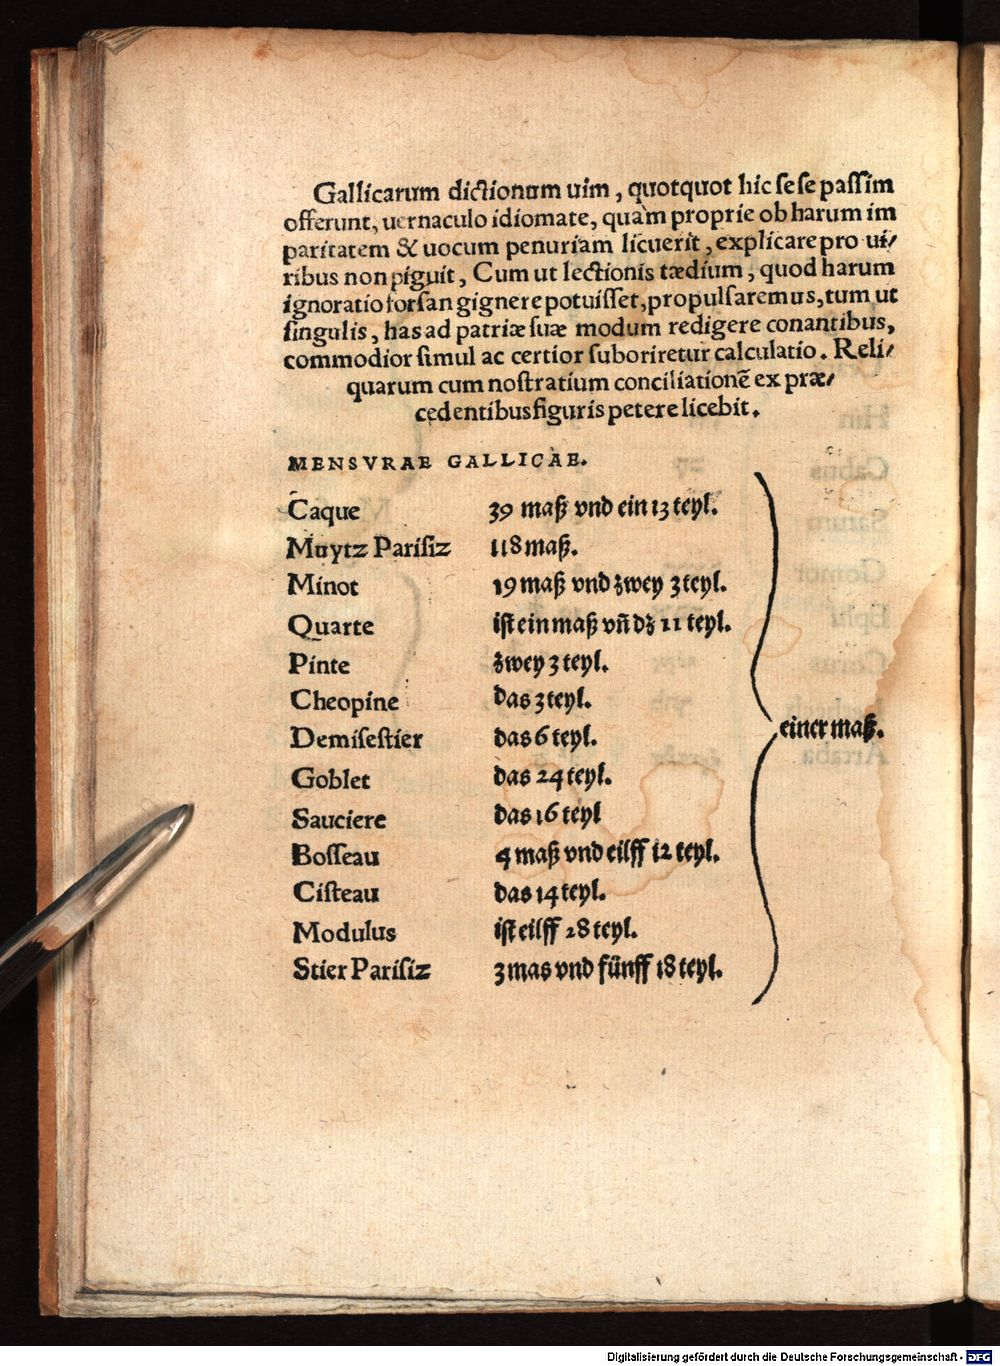 Gallicarum dictionum uim, quotquot hic sese passim
offerunt, uernaculo idiomate, quàm proprie ob harum im
paritatem & uocum penuriam licuerit, explicare pro ui/
ribus non piguit, Cum ut lectionis tædium, quod harum
ignoratio forsan gignere potuisset, propulsaremus, tum ut
singulis, has ad patriæ suæ modum redigere conantibus,
commodior simul ac certior suboriretur calculatio. Reli/
quarum cum nostratium conciliationē ex præ/
cedentibus figuris petere licebit.
MENSVRAE GALLICAE.
Caque 39 maß vnd ein 13 teyl.
Muytz Parisiz 118 maß.
Minot 19 maß vnd zwey 3 teyl.
Quarte ist ein maß vn̄ dz 11 teyl.
Pinte zwey 3 teyl.
Cheopine das 3 teyl.
Demisestier das 6 teyl.
einer maß.
Goblet das 24 teyl.
Sauciere das 16 teyl
Bosseau 4 maß vnd eilff 12 teyl.
Cisteau das 14 teyl.
Modulus ist eilff 28 teyl.
Stier Parisiz 3 mas vnd fünff 18 teyl.
Digitalisierung gefördert durch die Deutsche Forschungsgemeinschaft - DFG